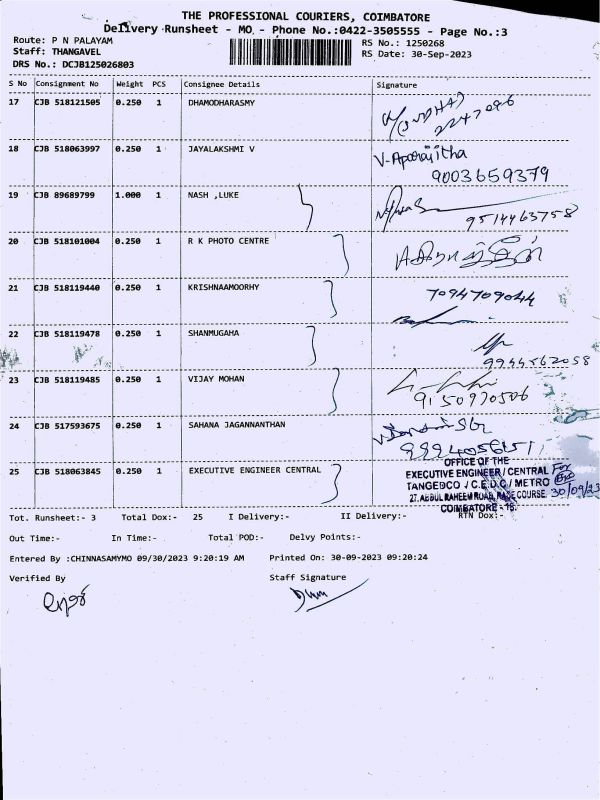 THE PROFESSIONAL COURIERS, COIMBATORE
Delivery Runsheet - MO - Phone No.:0422-3505555 - Page No.:3
Route: P N PALAYAM RS No.: 1250268
Staff: THANGAVEL RS Date: 30-Sep-2023
DRS No.: DCJB125026803
S No Consignment No Weight PCS Consignee Details Signature
17 CJB 518121505 0.250 1 DHAMODHARASMY
18 CJB 518063997 0.250 1 JAYALAKSHMI V V-Aparajitha
9003659379
19 CJB 89689799 1.000 1 NASH ,LUKE
9514463758
20 CJB 518101004 0.250 1 R K PHOTO CENTRE
21 CJB 518119440 0.250 1 KRISHNAAMOORHY 7094709044
22 CJB 518119478 0.250 1 SHANMUGAHA
9944562058
23 CJB 518119485 0.250 1 VIJAY MOHAN
9150970506
24 CJB 517593675 0.250 1 SAHANA JAGANNANTHAN
25 CJB 518063845 0.250 1 EXECUTIVE ENGINEER CENTRAL
OFFICE OF THE
EXECUTIVE ENGINEER / CENTRAL For
TANGEDCO / C.E.D.C / METRO
27, ABDUL RAHEEM ROAD, RACE COURSE, 30/09/23
COIMBATORE - 18.
Tot. Runsheet:- 3 Total Dox:- 25 I Delivery:- II Delivery:- RTN Dox:-
Out Time:- In Time:- Total POD:- Delvy Points:-
Entered By :CHINNASAMYMO 09/30/2023 9:20:19 AM Printed On: 30-09-2023 09:20:24
Verified By Staff Signature